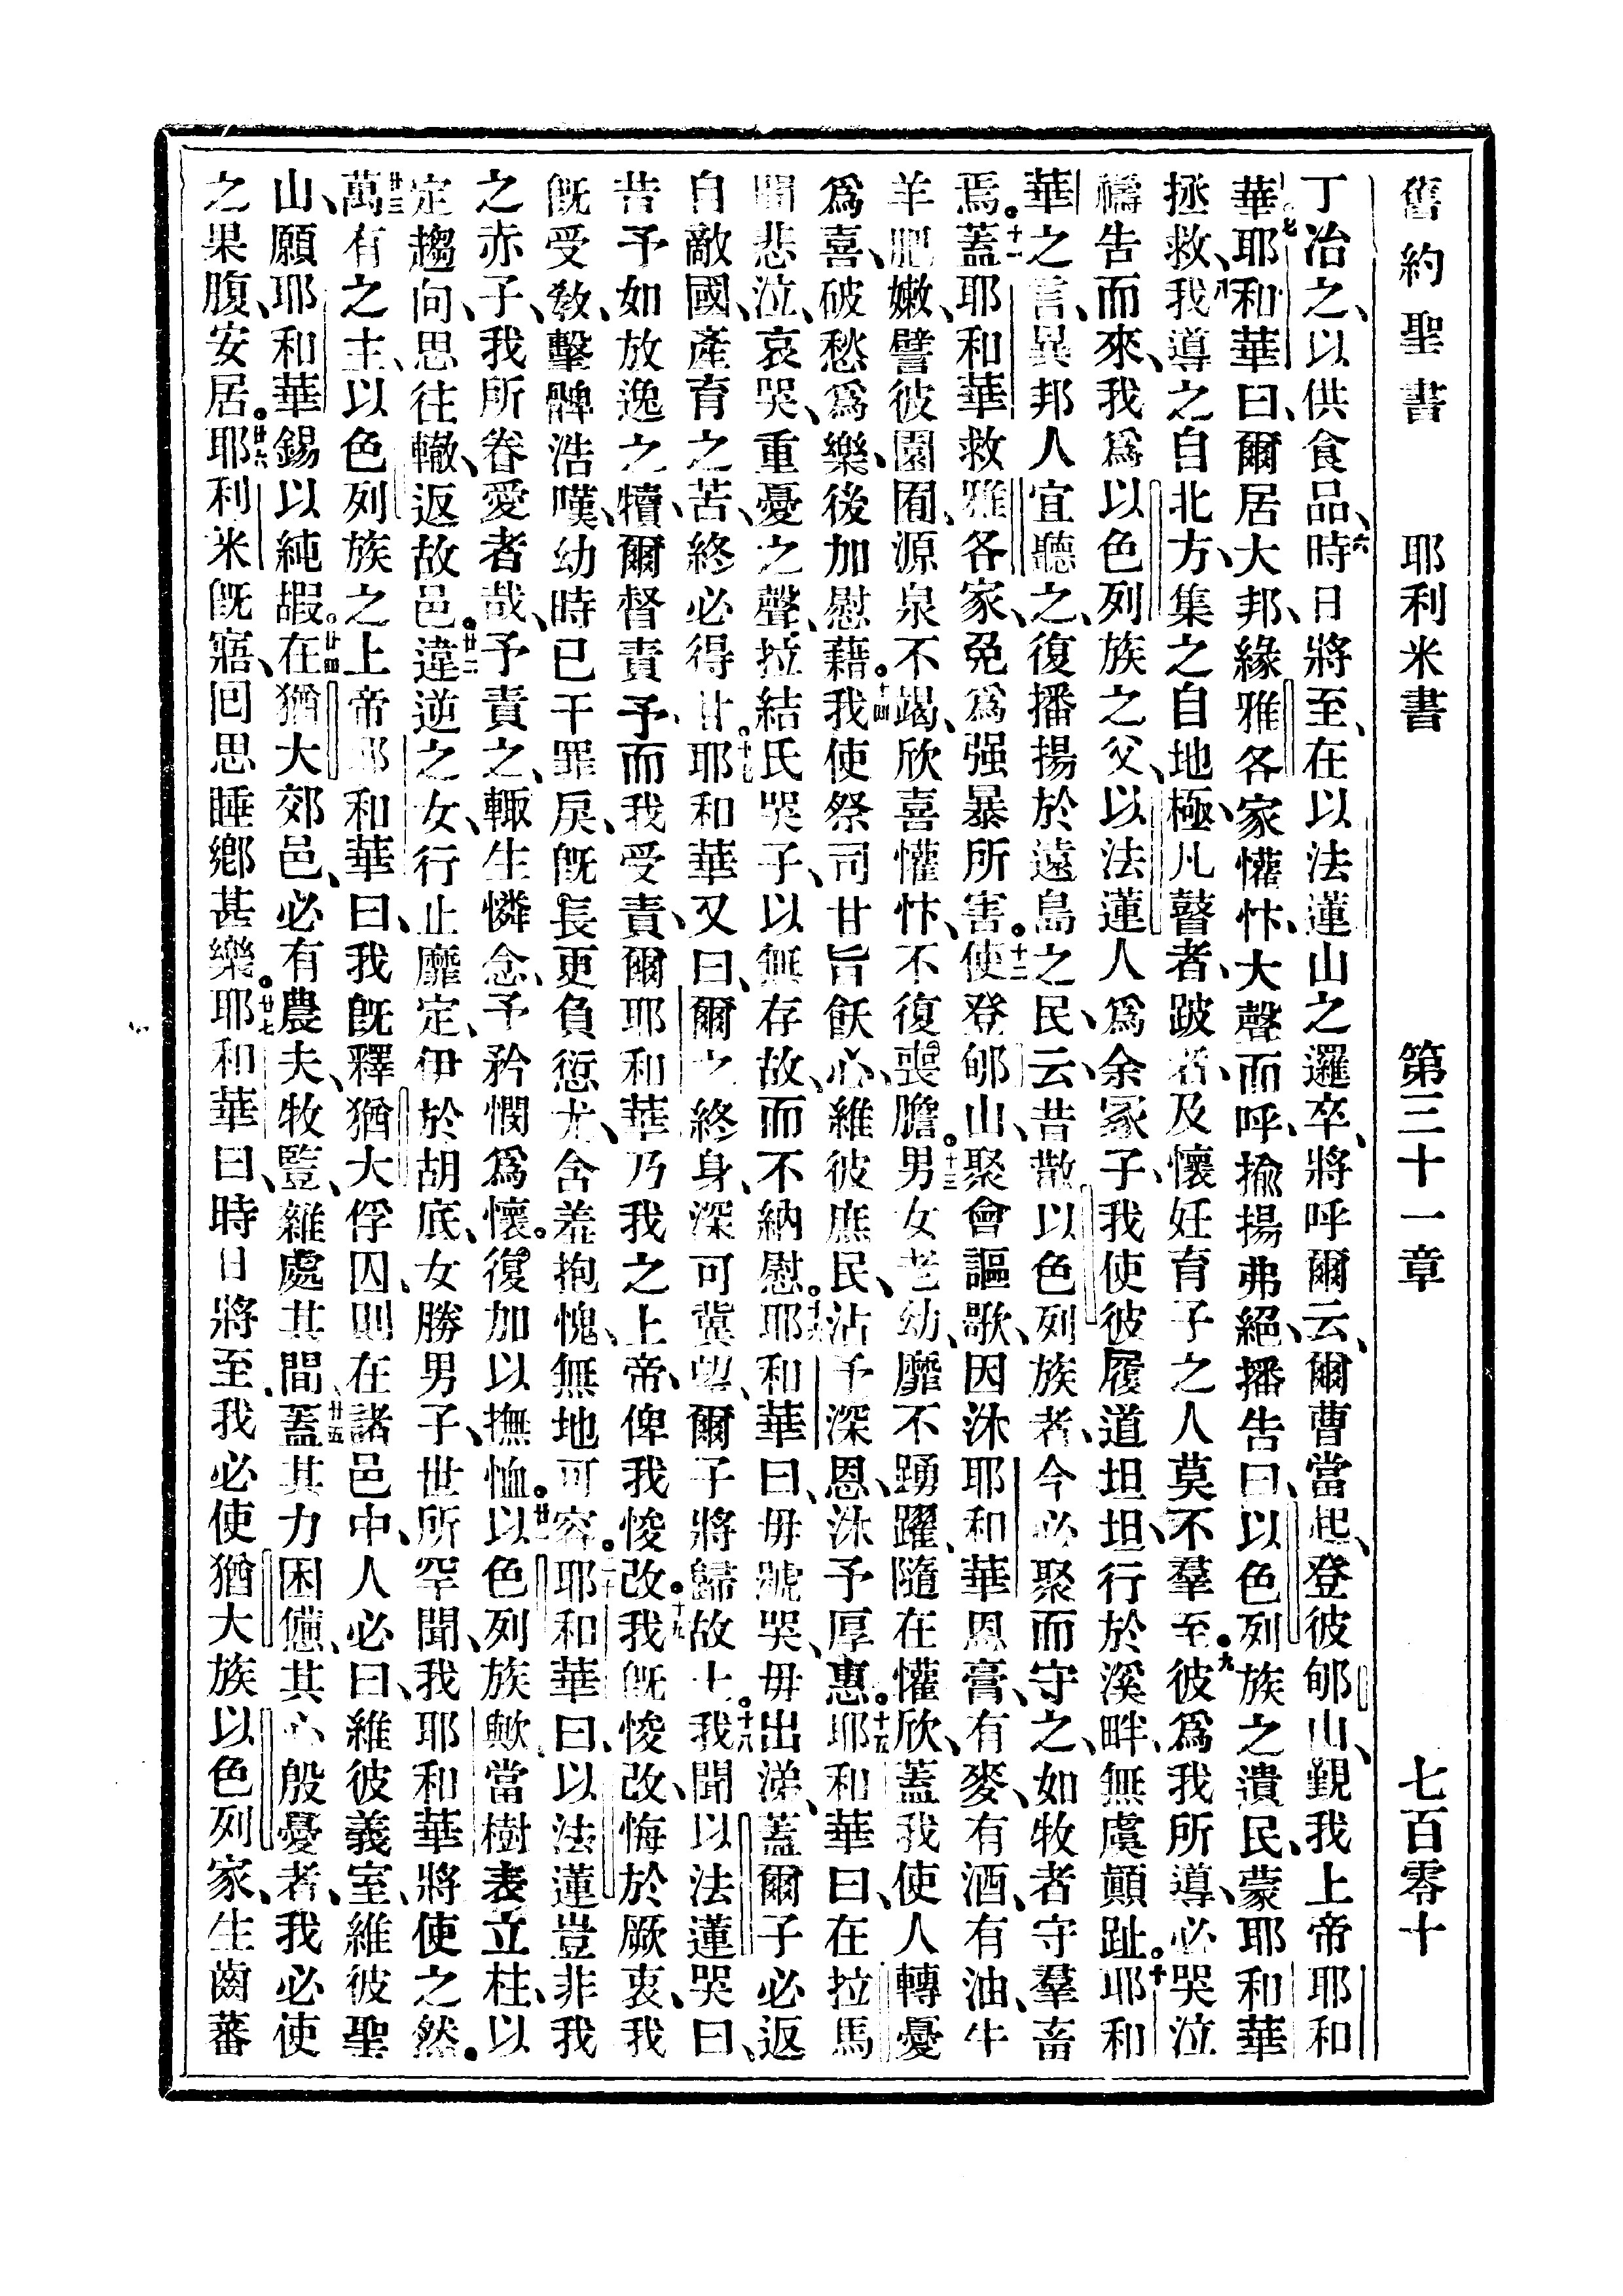 舊約聖書 耶利米書 第三十一章 七百零十
丁冶之、以供食品、六時日將至、在以法蓮山之邏卒、將呼爾云、爾曹當起、登彼郇山、覲我上帝耶和
華。七耶和華曰、爾居大邦、緣雅各家懽忭、大聲而呼、揄揚弗絕、播告曰、以色列族之遺民、蒙耶和華
拯救、八我導之自北方、集之自地極、凡瞽者、跛者、及懷妊育子之人、莫不羣至。九彼爲我所導、必哭泣
禱告而來、我爲以色列族之父、以法蓮人爲余冢子、我使彼履道坦坦、行於溪畔、無虞顚趾。十耶和
華之言、異邦人宜聽之、復播揚於遠島之民、云、昔散以色列族者、今必聚而守之、如牧者守羣畜
焉。十一蓋耶和華救雅各家、免爲强暴所害。十二使登郇山、聚會謳歌、因沐耶和華恩膏、有麥、有酒、有油、牛
羊肥嫩、譬彼園囿、源泉不竭、欣喜懽忭、不復喪膽。十三男女老幼、靡不踴躍、隨在懽欣、蓋我使人轉憂
爲喜、破愁爲樂、後加慰藉。十四我使祭司甘旨飫心、維彼庶民、沾予深恩、沐予厚惠。十五耶和華曰、在拉馬
聞悲泣、哀哭、重憂之聲、拉結氏哭子、以無存故、而不納慰。十六耶和華曰、毋號哭、毋出涕、蓋爾子必返
自敵國、產育之苦、終必得甘。十七耶和華又曰、爾之終身、深可冀望、爾子將歸故土。十八我聞以法蓮哭曰、
昔予如放逸之犢、爾督責予、而我受責、爾耶和華乃我之上帝、俾我悛改。十九我旣悛改、悔於厥衷、我
旣受敎、擊髀浩嘆、幼時已干罪戾、旣長更負愆尤、含羞抱愧、無地可容。二十耶和華曰、以法蓮豈非我
之赤子、我所眷愛者哉、予責之、輒生憐念、予矜憫爲懷。復加以撫恤。廿一以色列族歟、當樹表立柱、以
定趨向、思往轍、返故邑。廿二違逆之女、行止靡定、伊於胡底、女勝男子、世所罕聞、我耶和華將使之然。
廿三萬有之主、以色列族之上帝耶和華曰、我旣釋猶大俘囚、則在諸邑中、人必曰、維彼義室、維彼聖
山、願耶和華錫以純嘏。廿四在猶大郊邑、必有農夫、牧豎、雜處其間、廿五蓋其力困憊、其心殷憂者、我必使
之果腹、安居。廿六耶利米旣寤、囘思睡鄉甚樂。廿七耶和華曰、時日將至、我必使猶大族以色列家、生齒蕃